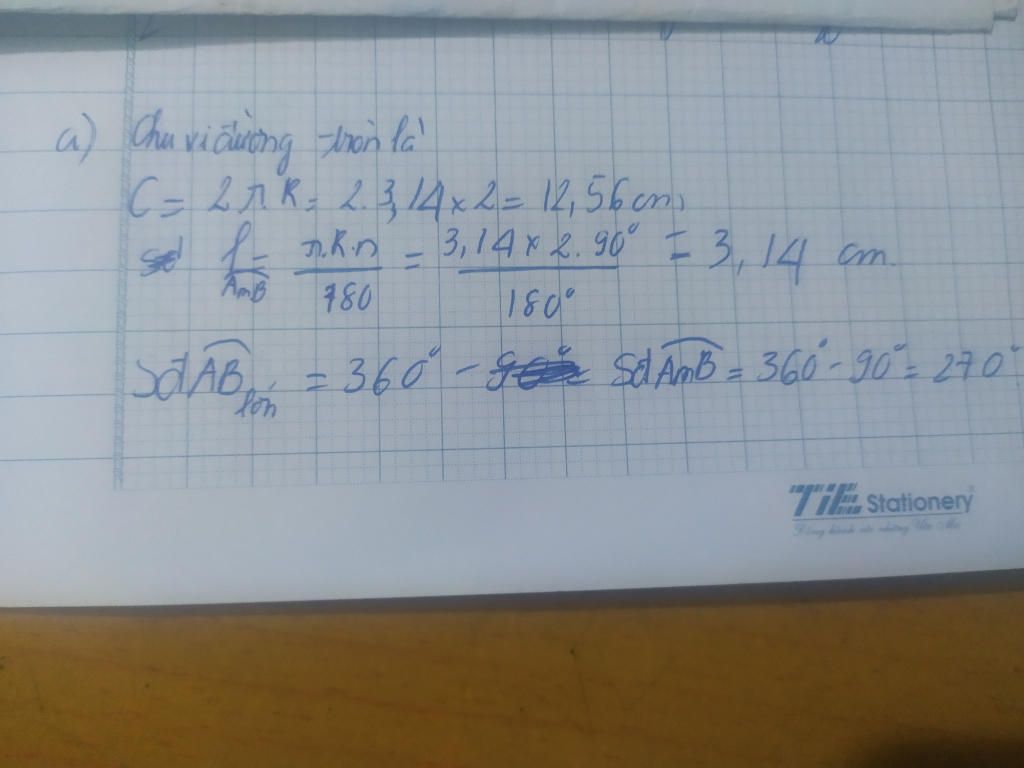 a) Chu vi đường tròn là
C = 2π.R = 2.3,14×2 = 12,56 cm,
l AmB = π.R.n / 180 = 3,14×2.90° / 180° = 3,14 cm.
Sđ AB lớn = 360° - Sđ AmB = 360° - 90° = 270°
TiE Stationery